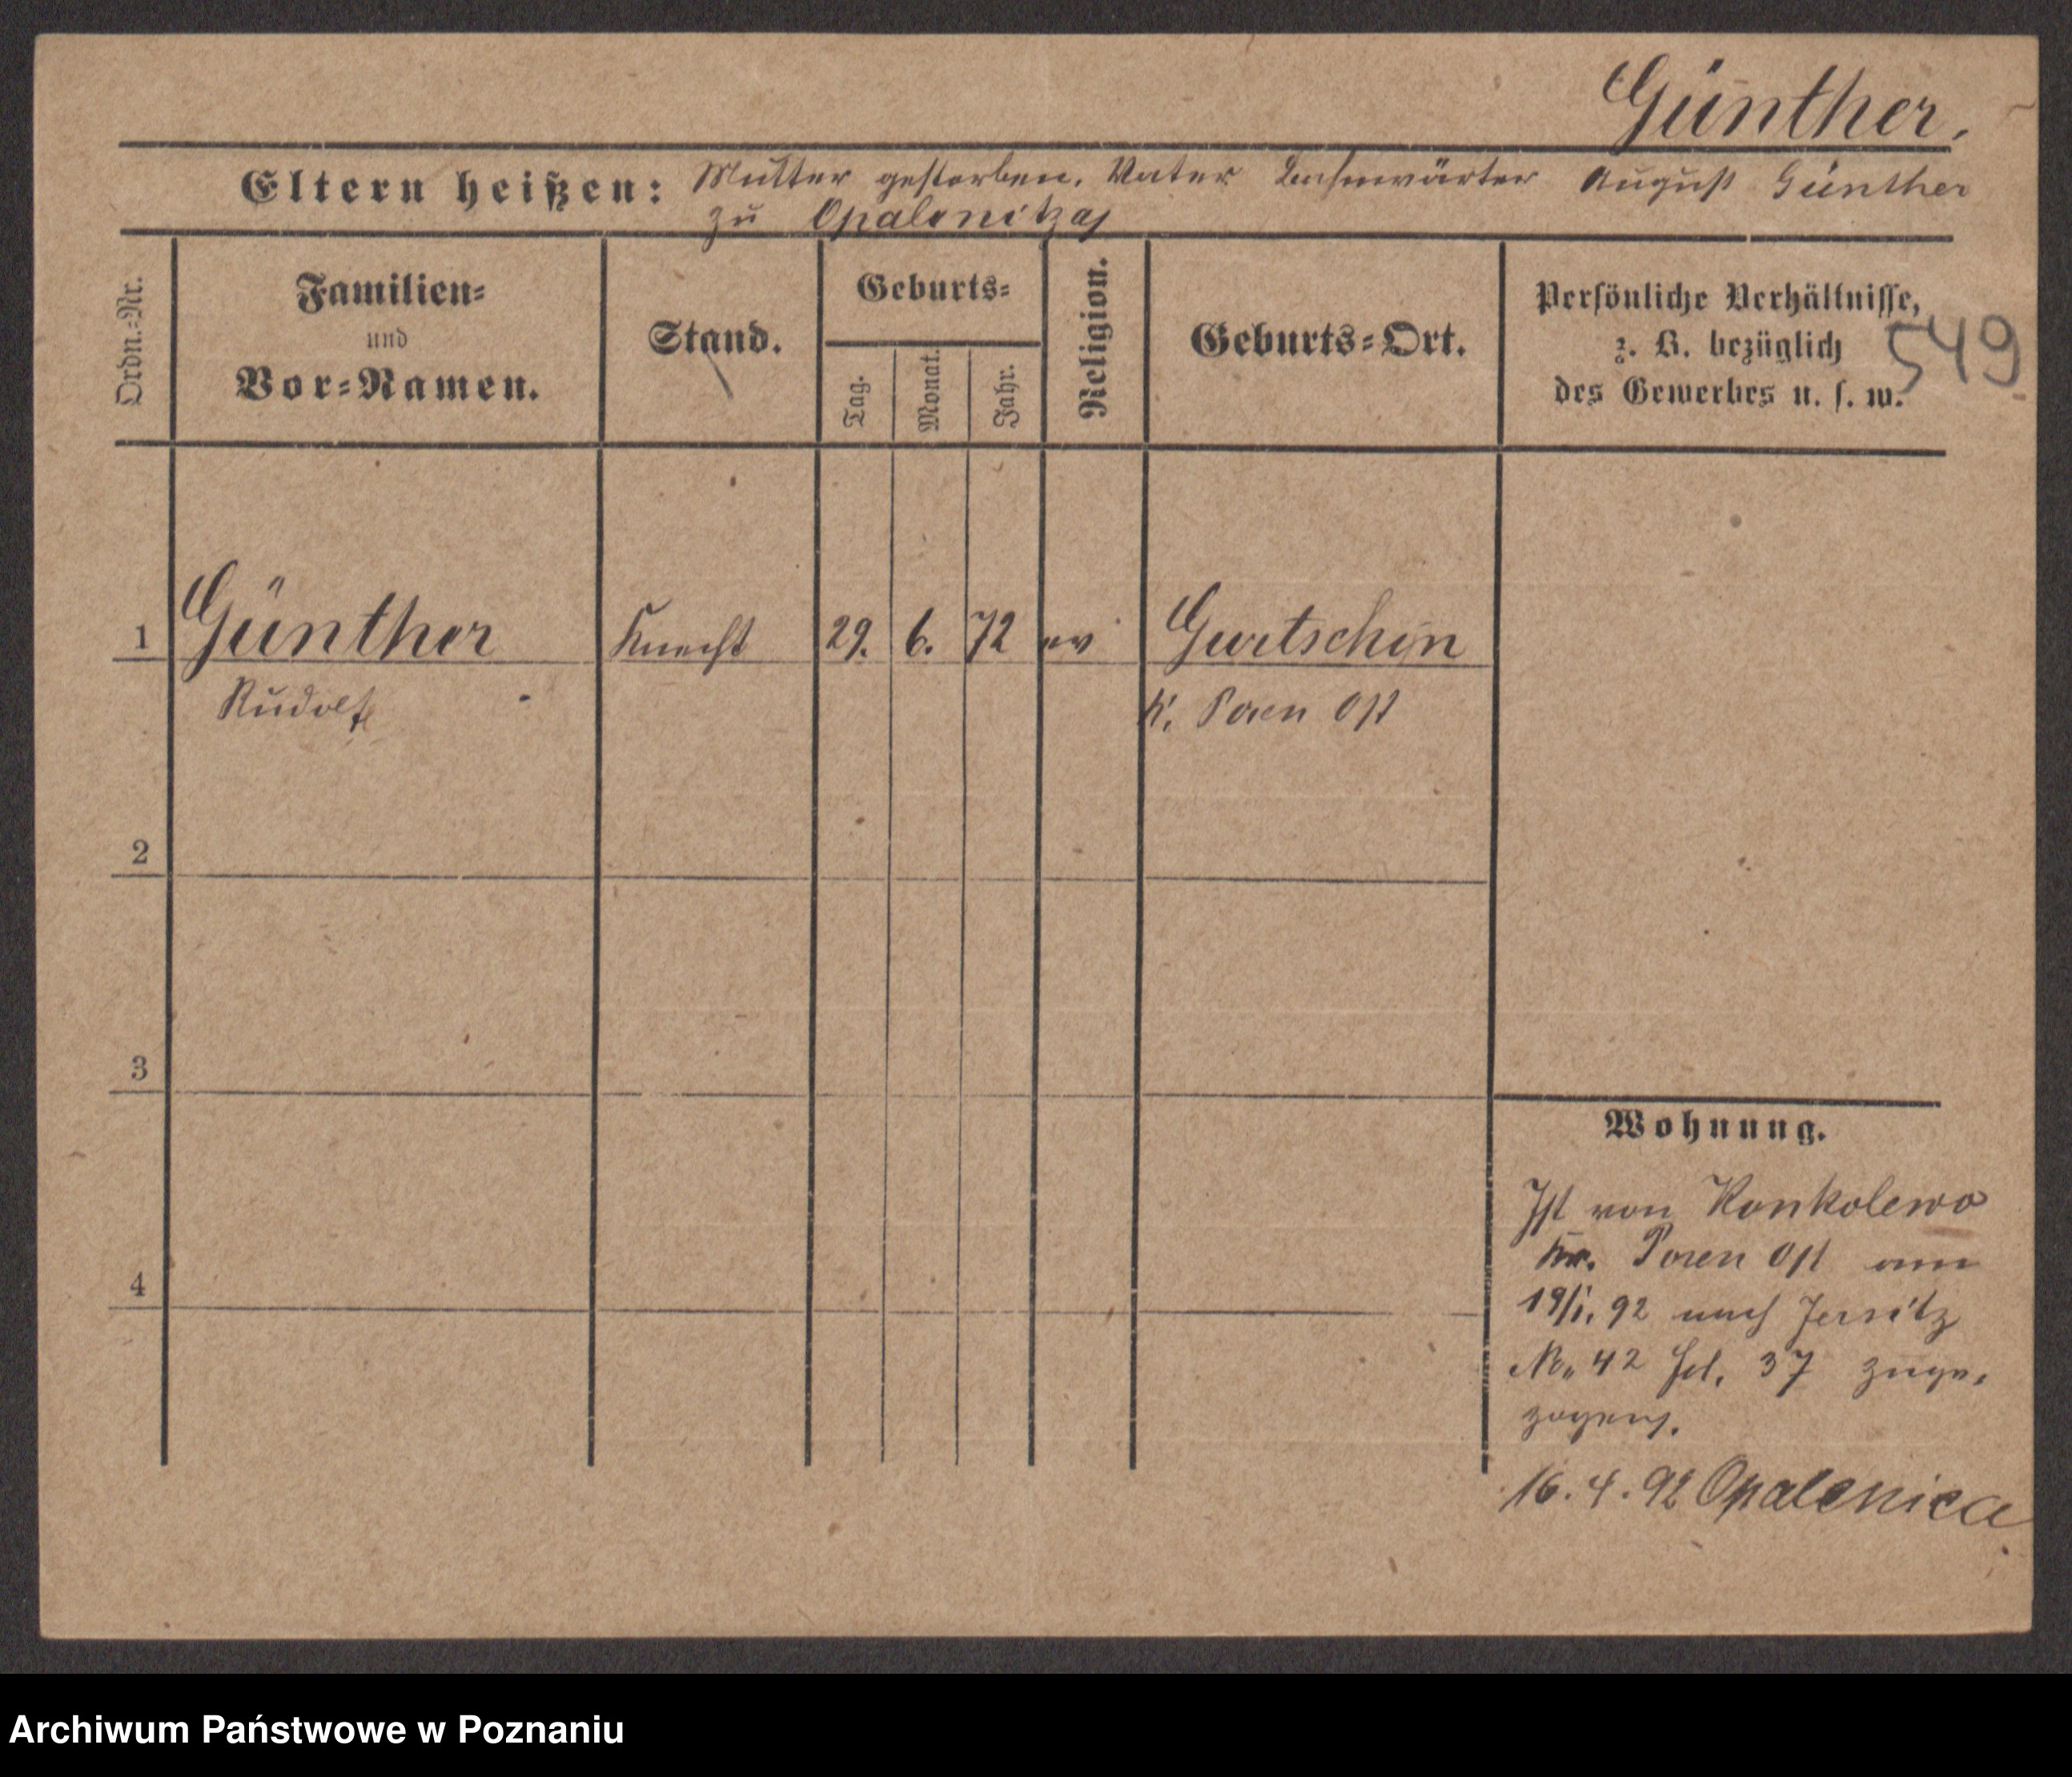 Günther.
Eltern heißen: Mutter gestorben, Vater Bahnwärter August Günther
zu Opalenitza
Ordn.-Nr.
Familien-
und
Vor-Namen.
Stand.
Geburts-
Tag.
Monat.
Jahr.
Religion.
Geburts-Ort.
Persönliche Verhältnisse,
z. B. bezüglich
des Gewerbes u. s. w.
549
1 Günther Knecht 29. 6. 72 ev Gurtschin
Rudolf K. Posen Ost
2
3
4
Wohnung.
Ist von Konkolewo
Kr. Posen Ost am
19/1. 92 nach Jersitz
No. 42 37 zuge-
zogen.
16. 4. 92 Opalenica
Archiwum Państwowe w Poznaniu